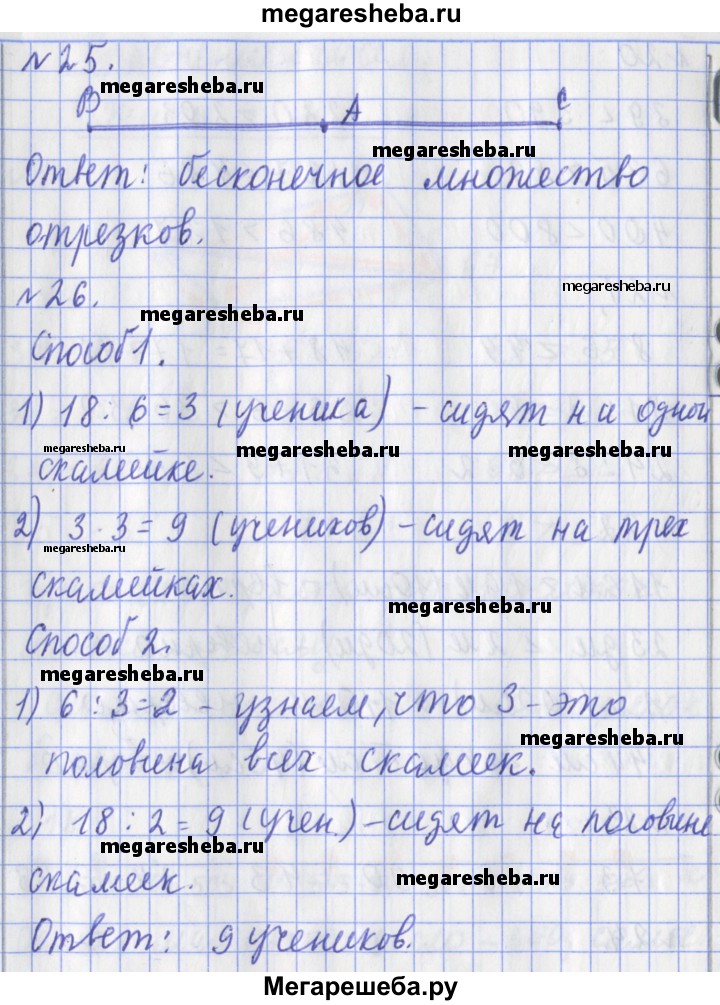 megaresheba.ru
№25.
megaresheba.ru
B A C
megaresheba.ru
Ответ: бесконечное множество
отрезков.
№26.
megaresheba.ru
megaresheba.ru
Способ 1.
1) 18 : 6 = 3 (ученика) - сидят на одной
megaresheba.ru megaresheba.ru megaresheba.ru
скамейке.
2) 3 · 3 = 9 (учеников) - сидят на трех
megaresheba.ru
скамейках.
megaresheba.ru
Способ 2.
megaresheba.ru
1) 6 : 3 = 2 - узнаем, что 3 - это
megaresheba.ru
половина всех скамеек.
2) 18 : 2 = 9 (учен.) - сидят на половине
megaresheba.ru
скамеек.
megaresheba.ru
Ответ: 9 учеников.
Мегарешеба.ру